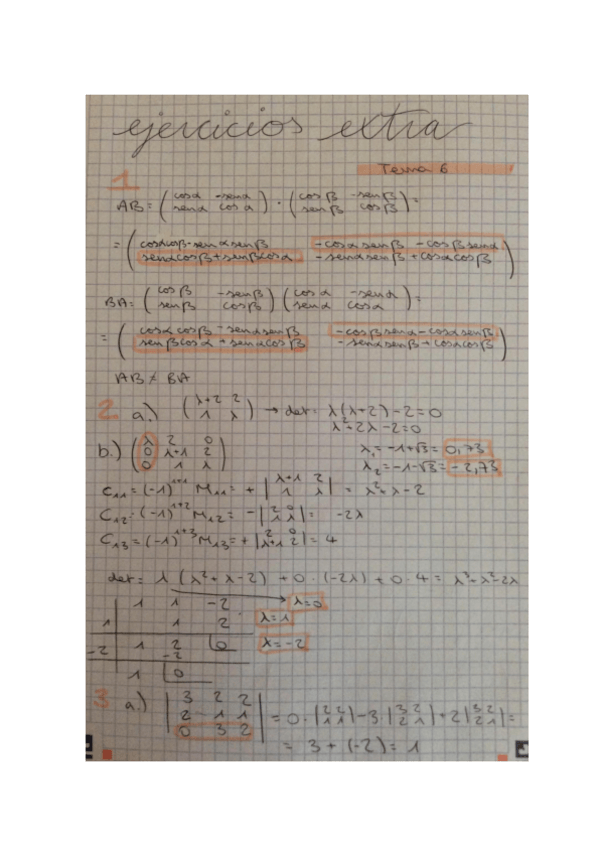 ejercicios extra
Tema 6
1
AB = (cosα -senα / senα cosα) · (cosβ -senβ / senβ cosβ) =
= (cosαcosβ - senαsenβ   -cosαsenβ - cosβsenα / senαcosβ + senβcosα   -senαsenβ + cosαcosβ)
BA = (cosβ -senβ / senβ cosβ) (cosα -senα / senα cosα) =
= (cosαcosβ - senαsenβ   -cosβsenα - cosαsenβ / senβcosα + senαcosβ   -senαsenβ + cosαcosβ)
AB ≠ BA
2 a.) (λ+2 2 / 1 λ) → det = λ(λ+2) - 2 = 0
λ² + 2λ - 2 = 0
λ₁ = -1+√3 = 0,73
λ₂ = -1-√3 = -2,73
b.) (λ 2 0 / 0 λ+1 2 / 0 1 λ)
C₁₁ = (-1)¹⁺¹ M₁₁ = + |λ+1 2 / 1 λ| = λ² + λ - 2
C₁₂ = (-1)¹⁺² M₁₂ = - |2 0 / 1 λ| = -2λ
C₁₃ = (-1)¹⁺³ M₁₃ = + |2 0 / λ+1 2| = 4
det = λ (λ² + λ - 2) + 0 · (-2λ) + 0 · 4 = λ³ + λ² - 2λ
1 1 -2 λ=0
1 1 2 λ=1
-2 1 2 0 λ=-2
-2
1 0
3 a.) |3 2 2 / 2 1 1 / 0 3 2| = 0 · |2 2 / 1 1| - 3 · |3 2 / 2 1| + 2 |3 2 / 2 1| =
= 3 + (-2) = 1